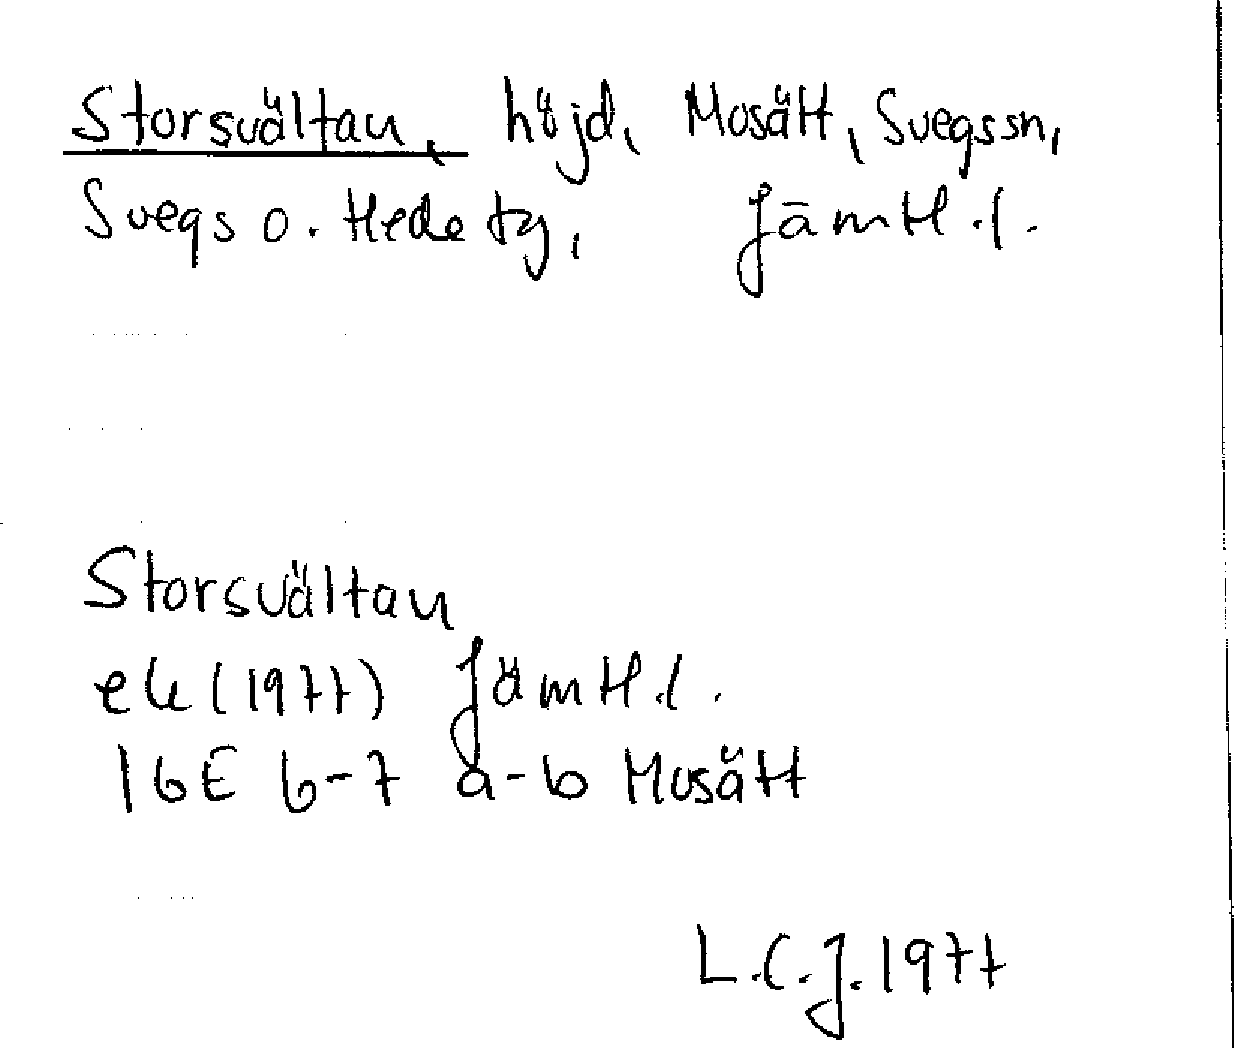 Storsvältan, höjd, Mosätt, Svegs sn,
Svegs o. Hede tg, Jämtl.l.
Storsvältan
ek (1977) Jämtl.l.
16E 6-7 a-b Mosätt
L.C.J. 1977